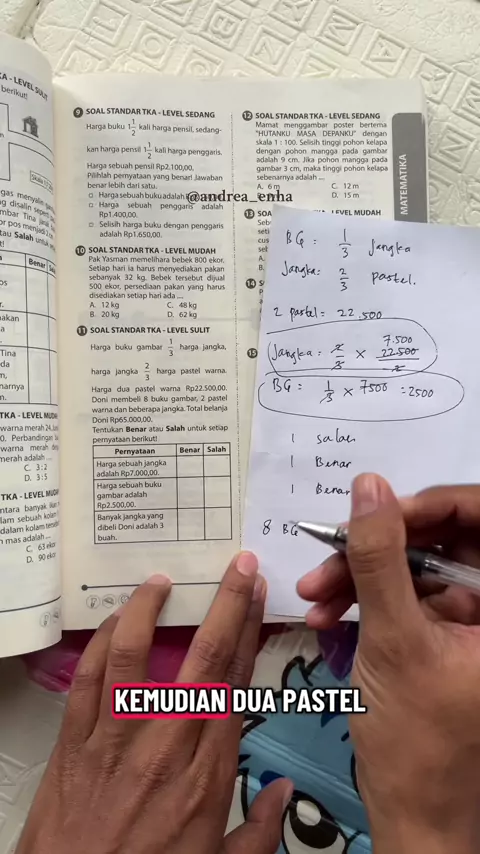 KA - LEVEL SULIT
berikut!
9 SOAL STANDAR TKA - LEVEL SEDANG
Harga buku 1 1/2 kali harga pensil, sedang-
kan harga pensil 1 1/2 kali harga penggaris.
Harga sebuah pensil Rp2.100,00.
Pilihlah pernyataan yang benar! Jawaban
benar lebih dari satu.
Harga sebuah buku adalah
Harga sebuah penggaris adalah
Rp1.400,00.
Selisih harga buku dengan penggaris
adalah Rp1.650,00.
10 SOAL STANDAR TKA - LEVEL MUDAH
Pak Yasman memelihara bebek 800 ekor.
Setiap hari ia harus menyediakan pakan
sebanyak 32 kg. Bebek tersebut dijual
500 ekor, persediaan pakan yang harus
disediakan setiap hari ada ....
A. 12 kg C. 48 kg
B. 20 kg D. 62 kg
11 SOAL STANDAR TKA - LEVEL SULIT
Harga buku gambar 1/3 harga jangka,
harga jangka 2/3 harga pastel warna.
Harga dua pastel warna Rp22.500,00.
Doni membeli 8 buku gambar, 2 pastel
warna dan beberapa jangka. Total belanja
Doni Rp65.000,00.
Tentukan Benar atau Salah untuk setiap
pernyataan berikut!
Pernyataan Benar Salah
Harga sebuah jangka
adalah Rp7.000,00.
Harga sebuah buku
gambar adalah
Rp2.500,00.
Banyak jangka yang
dibeli Doni adalah 3
buah.
12 SOAL STANDAR TKA - LEVEL SEDANG
Mamat menggambar poster bertema
"HUTANKU MASA DEPANKU" dengan
skala 1 : 100. Selisih tinggi pohon kelapa
dengan pohon mangga pada gambar
adalah 9 cm. Jika pohon mangga pada
gambar 3 cm, maka tinggi pohon kelapa
sebenarnya adalah ....
A. 6 m C. 12 m
D. 15 m
13 SOA LEVEL MUDAH
MATEMATIKA
@andrea_enha
BG = 1/3 Jangka
Jangka = 2/3 pastel.
2 pastel = 22.500
7.500
Jangka = 2/3 × 22.500/2
BG = 1/3 × 7500 = 2500
1 salah
1 Benar
1 Benar
8 BG
TKA - LEVEL MUDAH
C. 3 : 2
D. 3 : 5
TKA - LEVEL MUDAH
C. 63 ekor
D. 90 ekor
KEMUDIAN DUA PASTEL